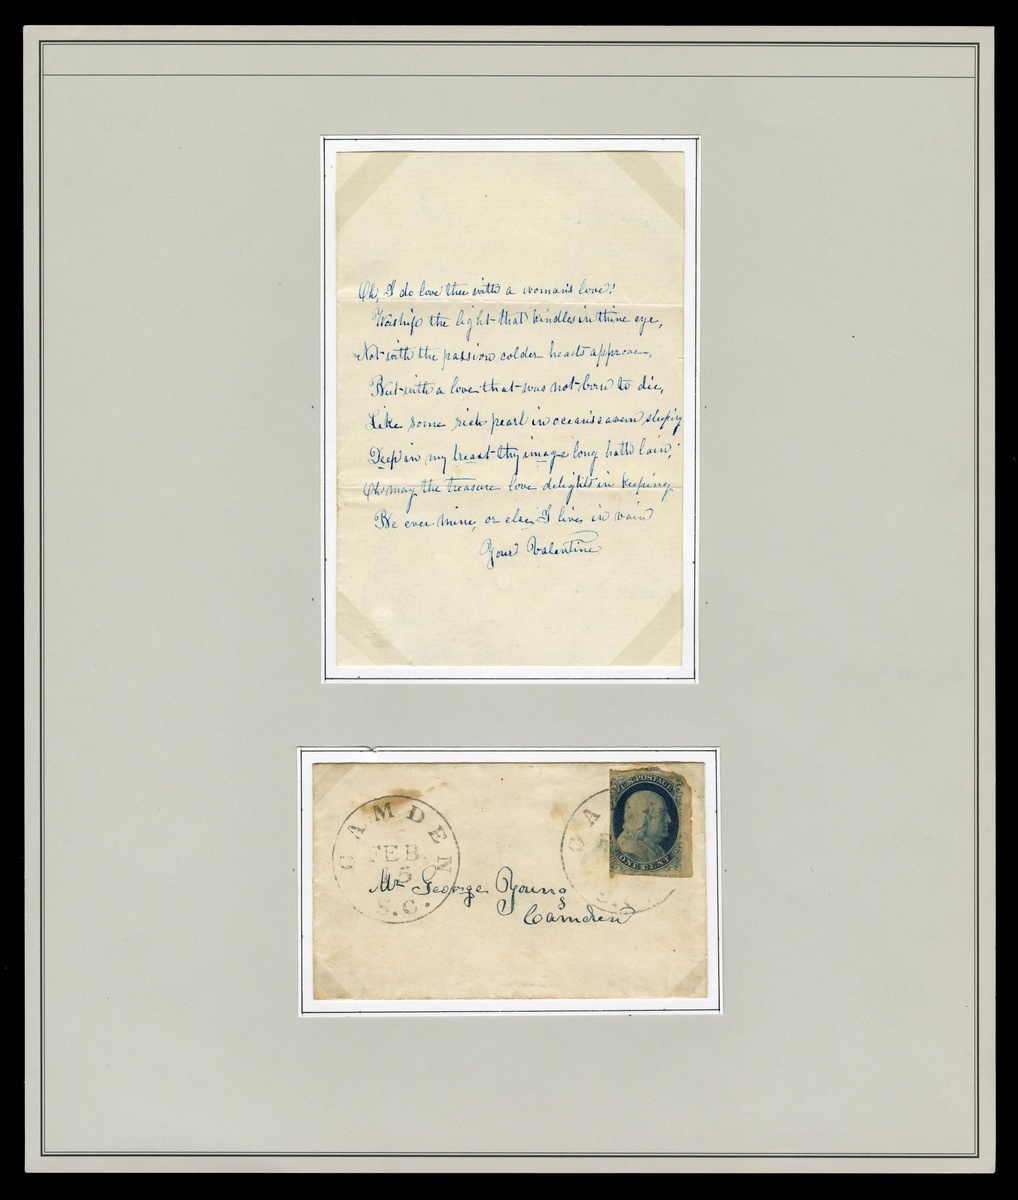 Oh, I do love thee with a woman's love!
Worship the light that kindles in thine eye,
Not with the passion colder hearts approve,
But with a love that was not born to die,
Like some rich pearl in ocean's cavern sleeping
Deep in my breast thy image long hath lain;
Oh may the treasure love delights in keeping
Be ever mine, or else I live in vain
Your Valentine
CAMDEN
FEB.
15
S.C.
CA
S.C.
U.S. POSTAGE
ONE CENT
Mr George Young
Camden